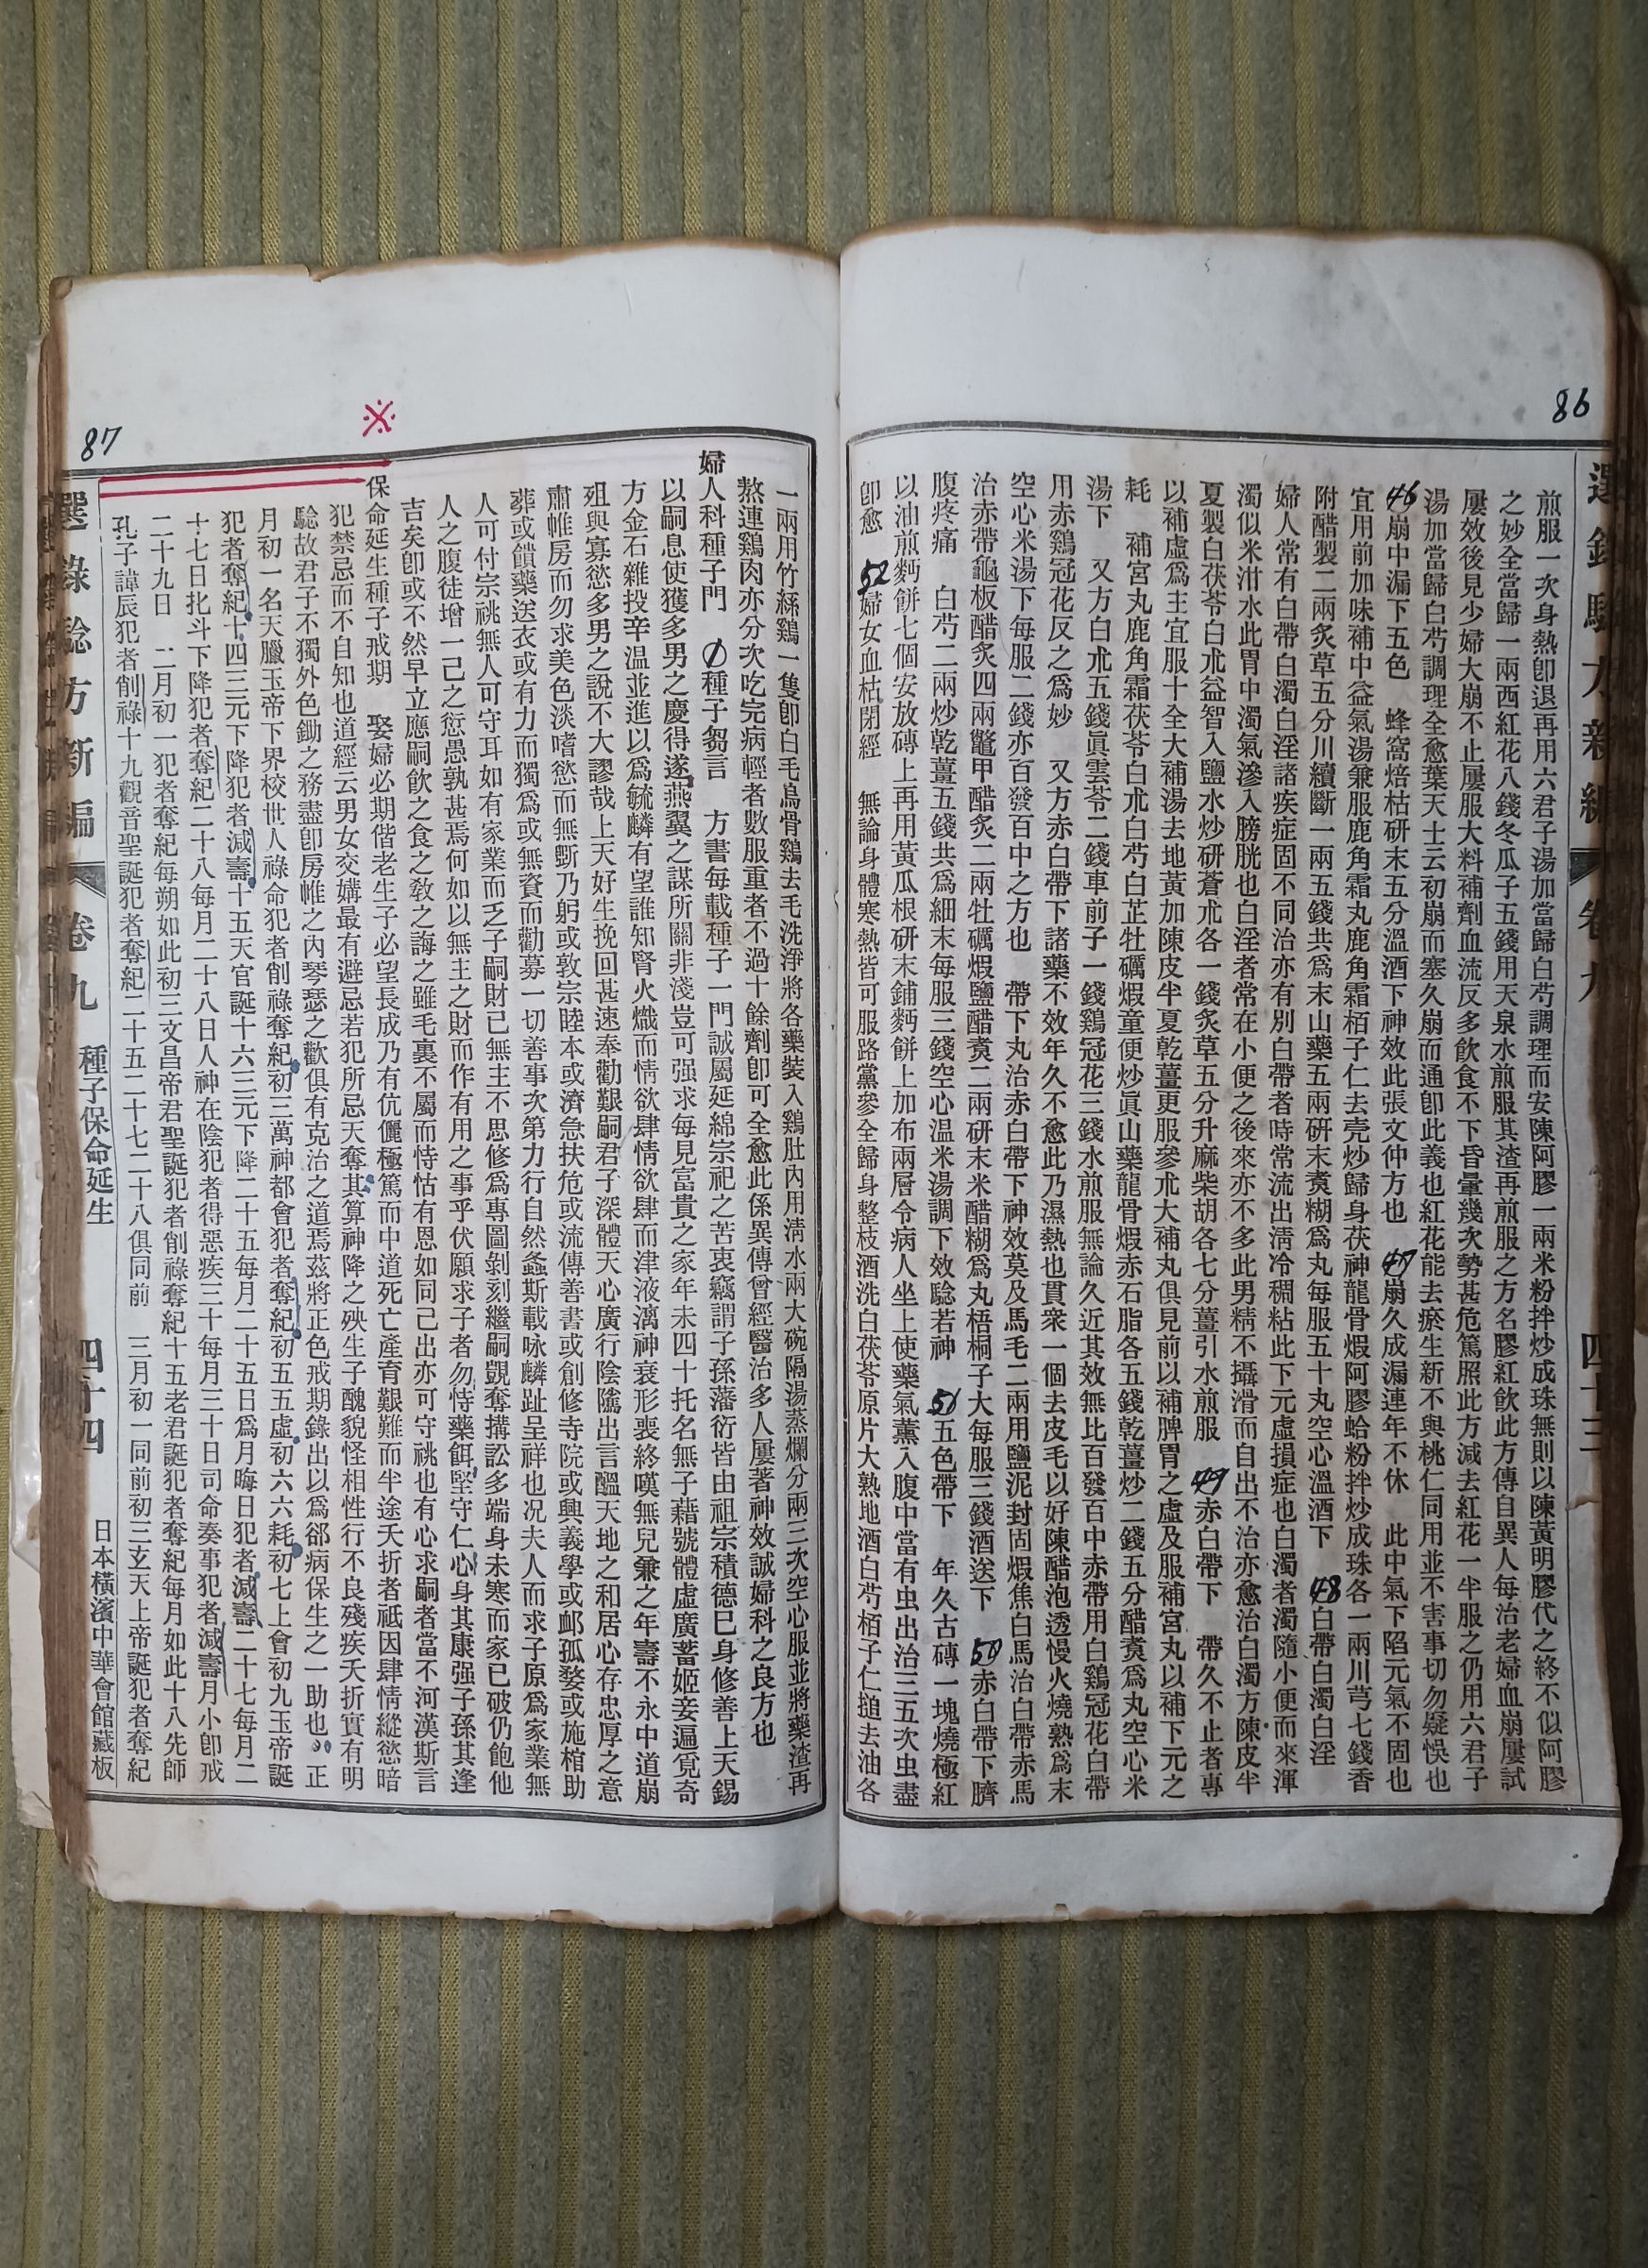 86
選錄騐方新編 卷九 四十三
煎服一次身熱卽退再用六君子湯加當歸白芍調理而安陳阿膠一兩米粉拌炒成珠無則以陳黃明膠代之終不似阿膠
之妙全當歸一兩西紅花八錢冬瓜子五錢用天泉水煎服其渣再煎服之方名膠紅飮此方傳自異人每治老婦血崩屢試
屢效後見少婦大崩不止屢服大料補劑血流反多飮食不下昏暈幾次勢甚危篤照此方減去紅花一半服之仍用六君子
湯加當歸白芍調理全愈葉天士云初崩而塞久崩而通卽此義也紅花能去瘀生新不與桃仁同用並不害事切勿疑悞也
46崩中漏下五色 蜂窩焙枯研末五分溫酒下神效此張文仲方也 47崩久成漏連年不休 此中氣下陷元氣不固也
宜用前加味補中益氣湯兼服鹿角霜丸鹿角霜栢子仁去売炒歸身茯神龍骨煆阿膠蛤粉拌炒成珠各一兩川芎七錢香
附醋製二兩炙草五分川續斷一兩五錢共爲末山藥五兩硏末煑糊爲丸每服五十丸空心溫酒下 48白帶白濁白淫
婦人常有白帶白濁白淫諸疾症固不同治亦有別白帶者時常流出淸冷稠粘此下元虛損症也白濁者濁隨小便而來渾
濁似米泔水此胃中濁氣滲入膀胱也白淫者常在小便之後來亦不多此男精不攝滑而自出不治亦愈治白濁方陳皮半
夏製白茯苓白朮益智入鹽水炒研蒼朮各一錢炙草五分升麻柴胡各七分薑引水煎服 49赤白帶下 帶久不止者專
以補虛爲主宜服十全大補湯去地黃加陳皮半夏乾薑更服參朮大補丸俱見前以補脾胃之虛及服補宮丸以補下元之
耗 補宮丸鹿角霜茯苓白朮白芍白芷牡礪煆童便炒眞山藥龍骨煆赤石脂各五錢乾薑炒二錢五分醋煑爲丸空心米
湯下 又方白朮五錢眞雲苓二錢車前子一錢鷄冠花三錢水煎服無論久近其效無比百發百中赤帶用白鷄冠花白帶
用赤鷄冠花反之爲妙 又方赤白帶下諸藥不效年久不愈此乃濕熱也貫衆一個去皮毛以好陳醋泡透慢火燒熟爲末
空心米湯下每服二錢亦百發百中之方也 帶下丸治赤白帶下神效莫及馬毛二兩用鹽泥封固煆焦白馬治白帶赤馬
治赤帶龜板醋炙四兩鼈甲醋炙二兩牡礪煆鹽醋煑二兩硏末米醋糊爲丸梧桐子大每服三錢酒送下 50赤白帶下臍
腹疼痛 白芍二兩炒乾薑五錢共爲細末每服三錢空心温米湯調下效騐若神 51五色帶下 年久古磚一塊燒極紅
以油煎麪餅七個安放磚上再用黃瓜根硏末鋪麪餅上加布兩層令病人坐上使藥氣薰入腹中當有虫出治三五次虫盡
卽愈 52婦女血枯閉經 無論身體寒熱皆可服路黨參全歸身整枝酒洗白茯苓原片大熟地酒白芍栢子仁搥去油各
87
※
一兩用竹絲鷄一隻卽白毛烏骨鷄去毛洗淨將各藥裝入鷄肚內用淸水兩大碗隔湯蒸爛分兩三次空心服並將藥渣再
熬連鷄肉亦分次吃完病輕者數服重者不過十餘劑卽可全愈此係異傳曾經醫治多人屢著神效誠婦科之良方也
婦人科種子門 種子芻言 方書每載種子一門誠屬延綿宗祀之苦衷竊謂子孫藩衍皆由祖宗積德巳身修善上天錫
以嗣息使獲多男之慶得遂燕翼之謀所關非淺豈可强求每見富貴之家年未四十托名無子藉號體虛廣蓄姬妾遍覓奇
方金石雜投辛温並進以爲毓麟有望誰知腎火熾而情欲肆情欲肆而津液漓神衰形喪終嘆無兒兼之年壽不永中道崩
殂與寡慾多男之說不大謬哉上天好生挽回甚速奉勸艱嗣君子深體天心廣行陰隲出言醞天地之和居心存忠厚之意
肅帷房而勿求美色淡嗜慾而無斲乃躬或敦宗睦本或濟急扶危或流傳善書或創修寺院或興義學或邮孤婺或施棺助
葬或饋藥送衣或有力而獨爲或無資而勸募一切善事次第力行自然螽斯載咏麟趾呈祥也况夫人而求子原爲家業無
人可付宗祧無人可守耳如有家業而乏子嗣財己無主不思修爲專圖剝刻繼嗣覬奪搆訟多端身未寒而家已破仍飽他
人之腹徒增一己之愆愚孰甚焉何如以無主之財而作有用之事乎伏願求子者勿恃藥餌堅守仁心身其康强子孫其逢
吉矣卽或不然早立應嗣飮之食之敎之誨之雖毛裏不屬而恃怙有恩如同己出亦可守祧也有心求嗣者當不河漢斯言
保命延生種子戒期 娶婦必期偕老生子必望長成乃有伉儷極篤而中道死亡產育艱難而半途夭折者祗因肆情縱慾暗
犯禁忌而不自知也道經云男女交媾最有避忌若犯所忌天奪其算神降之殃生子醜貌怪相性行不良殘疾夭折實有明
騐故君子不獨外色鋤之務盡卽房帷之內琴瑟之歡俱有克治之道焉茲將正色戒期錄出以爲郤病保生之一助也 正
月初一名天臘玉帝下界校世人祿命犯者削祿奪紀初三萬神都會犯者奪紀初五五虛初六六耗初七上會初九玉帝誕
犯者奪紀十四三元下降犯者減壽十五天官誕十六三元下降二十五每月二十五日爲月晦日犯者減壽二十七每月二
十七日北斗下降犯者奪紀二十八每月二十八日人神在陰犯者得惡疾三十每月三十日司命奏事犯者減壽月小卽戒
二十九日 二月初一犯者奪紀每朔如此初三文昌帝君聖誕犯者削祿奪紀十五老君誕犯者奪紀每月如此十八先師
孔子諱辰犯者削祿十九觀音聖誕犯者奪紀二十五二十七二十八俱同前 三月初一同前初三玄天上帝誕犯者奪紀
選錄騐方新編 卷九 種子保命延生 四十四 日本橫濱中華會館藏板